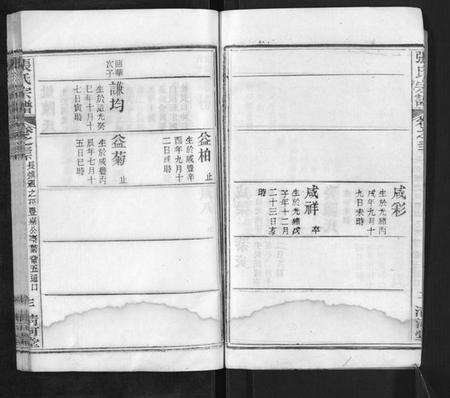 張氏宗譜
咸彩
生於光緒丙
戌年九月十
九日未時
咸祥 卒
生於光緒戊
子年十二月
二十三日亥
時
益柏 止
生於咸豐辛
酉年九月十
二日戌時
次子
謙均
生於道光癸
巳年十月十
七日寅時
益菊 止
生於咸豐丙
辰年七月十
五日巳時
張氏宗譜
三 清河堂